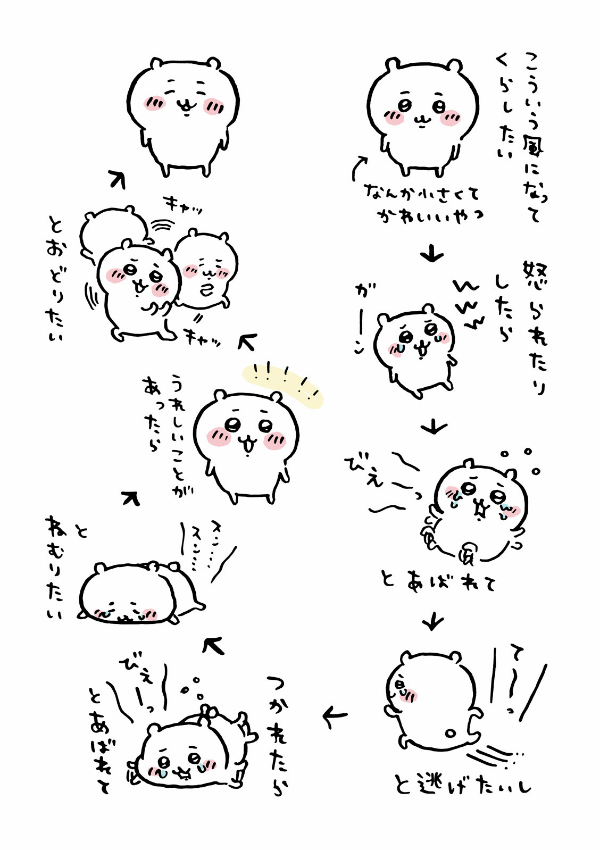 こういう風になって
くらしたい
なんか小さくて
かわいいやつ
怒られたり
したら
ガーン
びえーっ
とあばれて
てーっ
と逃げたいし
つかれたら
びえーっ
とあばれて
スン……
スン……
と
ねむりたい
うれしいことが
あったら
キャッ
キャッ
とおどりたい